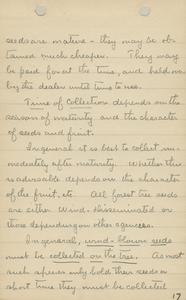 seeds are mature - they may be ob-
tained much cheaper. They may
be paid for at the time, and held on
by the dealer until time to use.
Time of Collection depends on the
season of maturity and the character
of seeds and fruit.
In general it is best to collect im-
mediately after maturity. Whether this
is advisable depends on the character
of the fruit, etc. All forest tree seeds
are either wind-disseminated or
those depending on other agencies.
In general, wind-blown seeds
must be collected on the tree. As most
such species only hold their seeds a
short time they must be collected
17